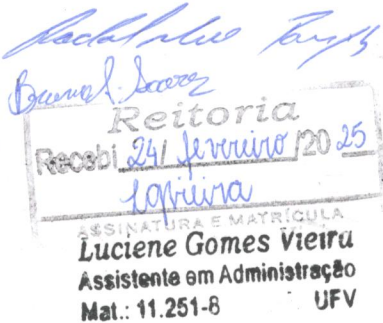 Bruno S. Soares
Reitoria
Recebi 24/ fevereiro /20 25
LGVieira
ASSINATURA E MATRÍCULA
Luciene Gomes Vieira
Assistente em Administração
Mat.: 11.251-8 UFV